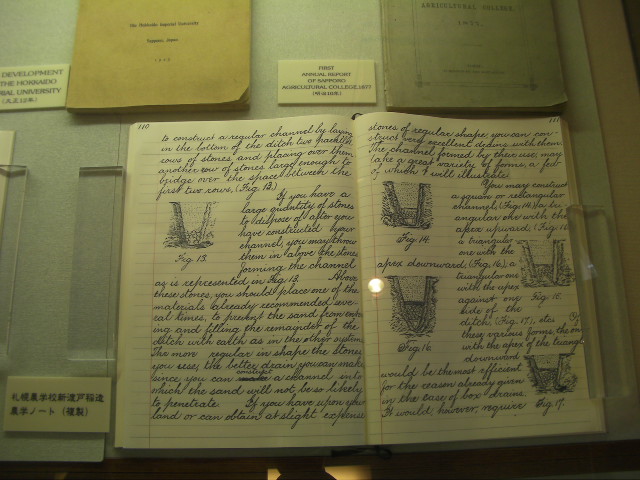 The Hokkaido Imperial University
Sapporo, Japan
DEVELOPMENT
THE HOKKAIDO
RIAL UNIVERSITY
FIRST
ANNUAL REPORT
OF SAPPORO
AGRICULTURAL COLLEGE, 1877
(明治10年)
AGRICULTURAL COLLEGE.
1877.
110
to construct a regular channel by laying
in the bottom of the ditch two parallel
rows of stones and placing over them
another row of stones large enough to
bridge over the space between the
first two rows, (Fig. 13.)
If you have a
large quantity of stones
to dispose of after you
have constructed your
channel, you may throw
them in above the stones
forming the channel
Fig. 13.
as is represented in Fig. 13. Above
these stones, you should place one of the
materials already recommended seve-
ral times, to prevent the sand from enter-
ing and filling the remainder of the
ditch with earth as in the other system.
The more regular in shape the stones
you use, the better drain you can make
since you can construct a channel into
which the sand will not be so likely
to penetrate. If you have upon your
land or can obtain at slight expense
111
stones of regular shape, you can con-
struct very excellent drains with them.
The channel formed by their use, may
take a great variety of forms, a few
of which I will illustrate.
You may construct
a square or rectangular
channel, (Fig. 14.)
angular one with the
apex upward, (Fig. 15
Fig. 14.
a triangular
one with the
apex downward, (Fig. 16.), a
triangular one
with the apex
against one
side of the
Fig. 15.
ditch, (Fig. 17.), etc. Of
these various forms, the one
with the apex of the triangle
Fig. 16.
downward
would be the most efficient
for the reason already given
in the case of box drains.
It would, however, require
Fig. 17.
札幌農学校新渡戸稲造
農学ノート（複製）